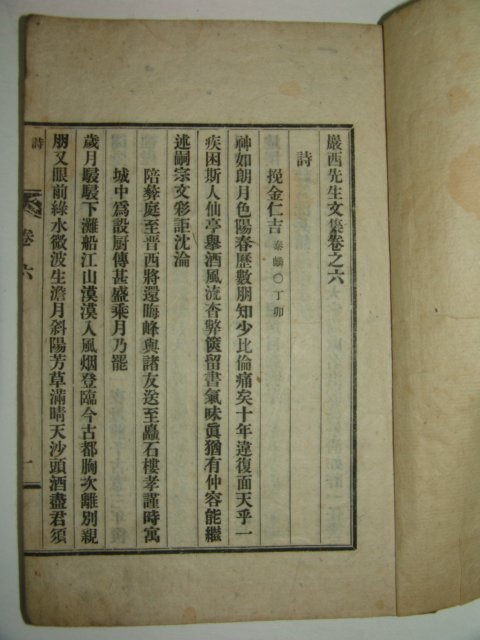 巖西先生文集卷之六
詩
挽金仁吉 泰麟○丁卯
神如朗月色陽春歷數朋知少比倫痛矣十年違復面天乎一
疾困斯人仙亭擧酒風流杳弊篋留書氣味眞猶有仲容能繼
述嗣宗文彩詎沈淪
陪彛庭至晋西將還晦峰與諸友送至矗石樓孝謹時寓
城中爲設厨傳甚盛乘月乃罷
歲月駸駸下灘船江山漠漠入風烟登臨今古都胸次離別親
朋又眼前綠水微波生澹月斜陽芳草滿晴天沙頭酒盡君須
詩 卷六 一